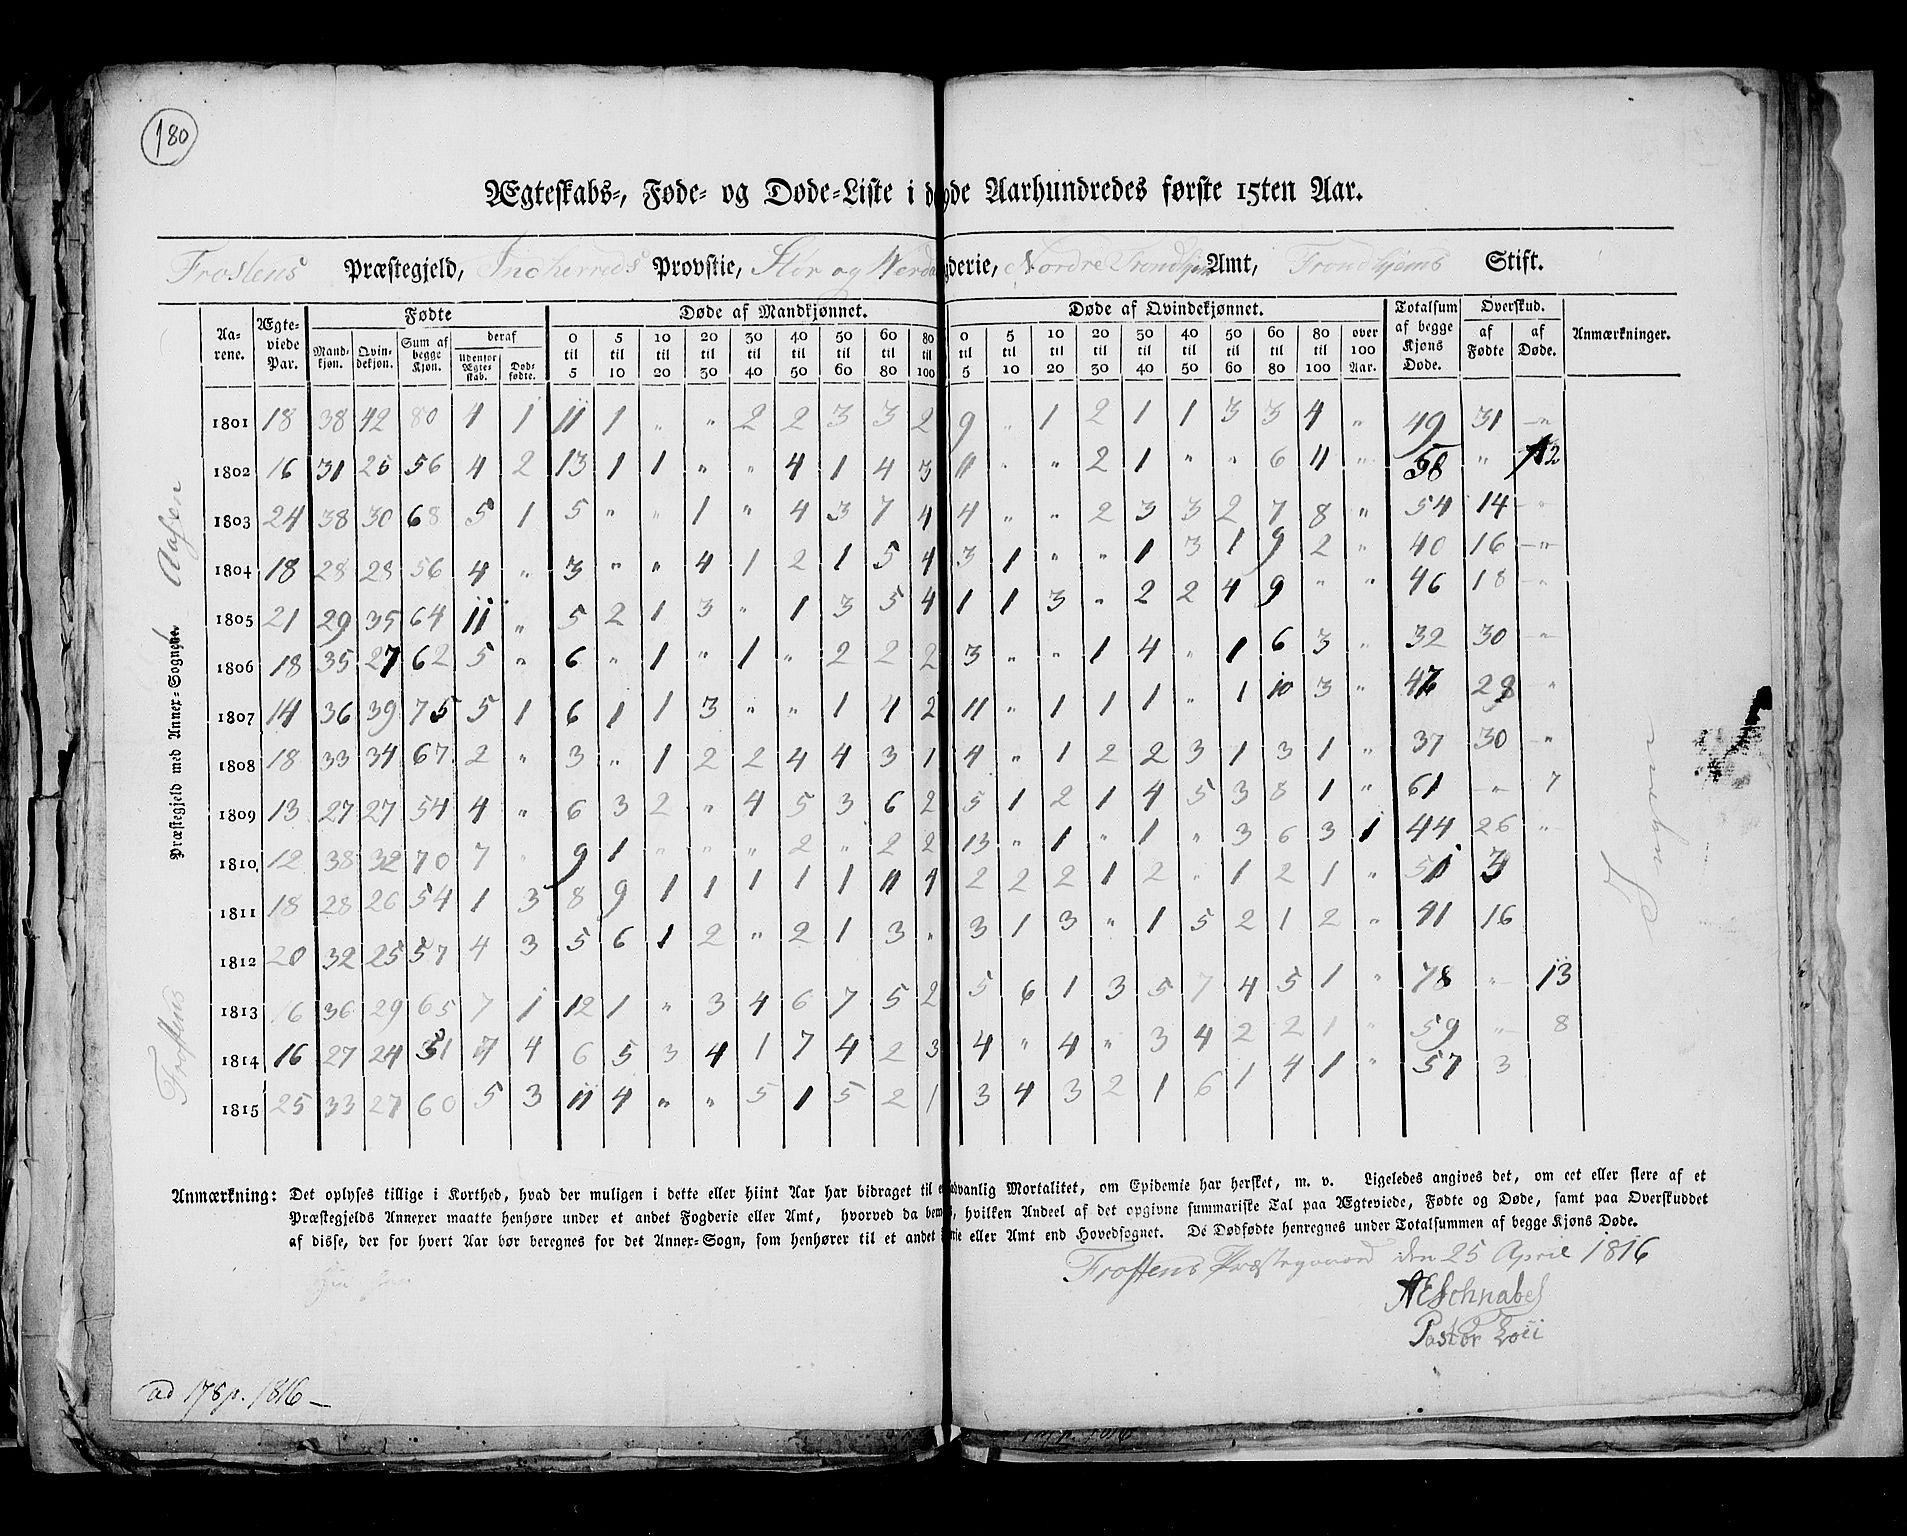 180
Ægteskabs-, Føde- og Døde-Liste i d de Aarhundredes første 15ten Aar.
Frostens Præstegjeld, Inderreds Provstie, Stør og Werda gderie, Nordre Trondhjems Amt, Trondhjems Stift.
Aarene. Ægteviede Par. Fødte Døde af Mandkjønnet. Døde af Qvindekjønnet. Totalsum af begge Kjøns Døde. Overskud. Anmærkninger.
Mandkjøn. Qvindekjøn. Sum af begge Kjøn. deraf af Fødte af Døde.
Udenfor Ægteskab. Dødfødte.
0 til 5 5 til 10 10 til 20 20 til 30 30 til 40 40 til 50 50 til 60 60 til 80 80 til 100 0 til 5 5 til 10 10 til 20 20 til 30 30 til 40 40 til 50 50 til 60 60 til 80 80 til 100 over 100 Aar.
Frostens Præstegjeld med Annex-Sognet. Aasen
1801 18 38 42 80 4 1 11 1 " " 2 2 3 3 2 9 " 1 2 1 1 3 3 4 " 49 31 "
1802 16 31 25 56 4 2 13 1 1 " " 4 1 4 3 11 " " 2 1 " " 6 4 " 58 " 2
1803 24 38 30 68 5 1 5 " " 1 " 4 3 7 4 4 " " 2 3 3 2 7 8 " 54 14 "
1804 18 28 28 56 4 " 3 " " 4 1 2 1 5 4 3 1 " " 1 3 1 9 2 " 40 16 "
1805 21 29 35 64 11 " 5 2 1 3 " 1 3 5 4 1 1 3 " 2 2 4 9 " " 46 18 "
1806 18 35 27 62 5 " 6 " 1 " 1 " 2 2 2 3 " " 1 4 " 1 6 3 " 32 30 "
1807 14 36 39 75 5 1 6 1 1 3 " " 1 4 2 11 " 1 1 1 " 1 10 3 " 47 28 "
1808 18 33 34 67 2 " 3 " 1 2 2 4 4 3 1 4 " 1 2 2 3 1 3 1 " 37 30 "
1809 13 27 27 54 4 " 6 3 2 " 4 5 3 6 2 5 1 2 1 4 5 3 8 1 " 61 " 7
1810 12 38 32 70 7 " 9 1 " " " 2 " 2 2 13 " 1 " 1 " 3 6 3 1 44 26 "
1811 18 28 26 54 1 3 8 9 1 1 1 1 1 11 4 2 2 2 1 2 " 1 2 1 " 51 3
1812 20 32 25 57 4 3 5 6 1 2 " 2 1 3 " 3 1 3 " 1 5 2 1 2 " 41 16
1813 16 36 29 65 7 1 12 1 " 3 4 6 7 5 2 5 6 1 3 5 7 4 5 1 " 78 " 13
1814 16 27 24 51 7 4 6 5 3 4 1 7 4 2 3 4 " 4 " 3 4 2 2 1 " 59 " 8
1815 25 33 27 60 5 3 11 4 " " 5 1 5 2 1 3 4 3 2 1 6 1 4 1 " 57 3
Anmærkning: Det oplyses tillige i Korthed, hvad der muligen i dette eller hiint Aar har bidraget til advanlig Mortalitet, om Epidemie har hersket, m. v. Ligeledes angives det, om eet eller flere af et
Præstegjelds Annexer maatte henhøre under et andet Fogderie eller Amt, hvorved da bem , hvilken Andeel af det opgivne summariske Tal paa Ægteviede, Fødte og Døde, samt paa Overskuddet
af disse, der for hvert Aar bør beregnes for det Annex-Sogn, som henhører til et andet rie eller Amt end Hovedsognet. De Dødfødte henregnes under Totalsummen af begge Kjøns Døde.
Frostens Præstegaard den 25 April 1816
AESchnabel
Pastor Loci
ad 178 p. 1816